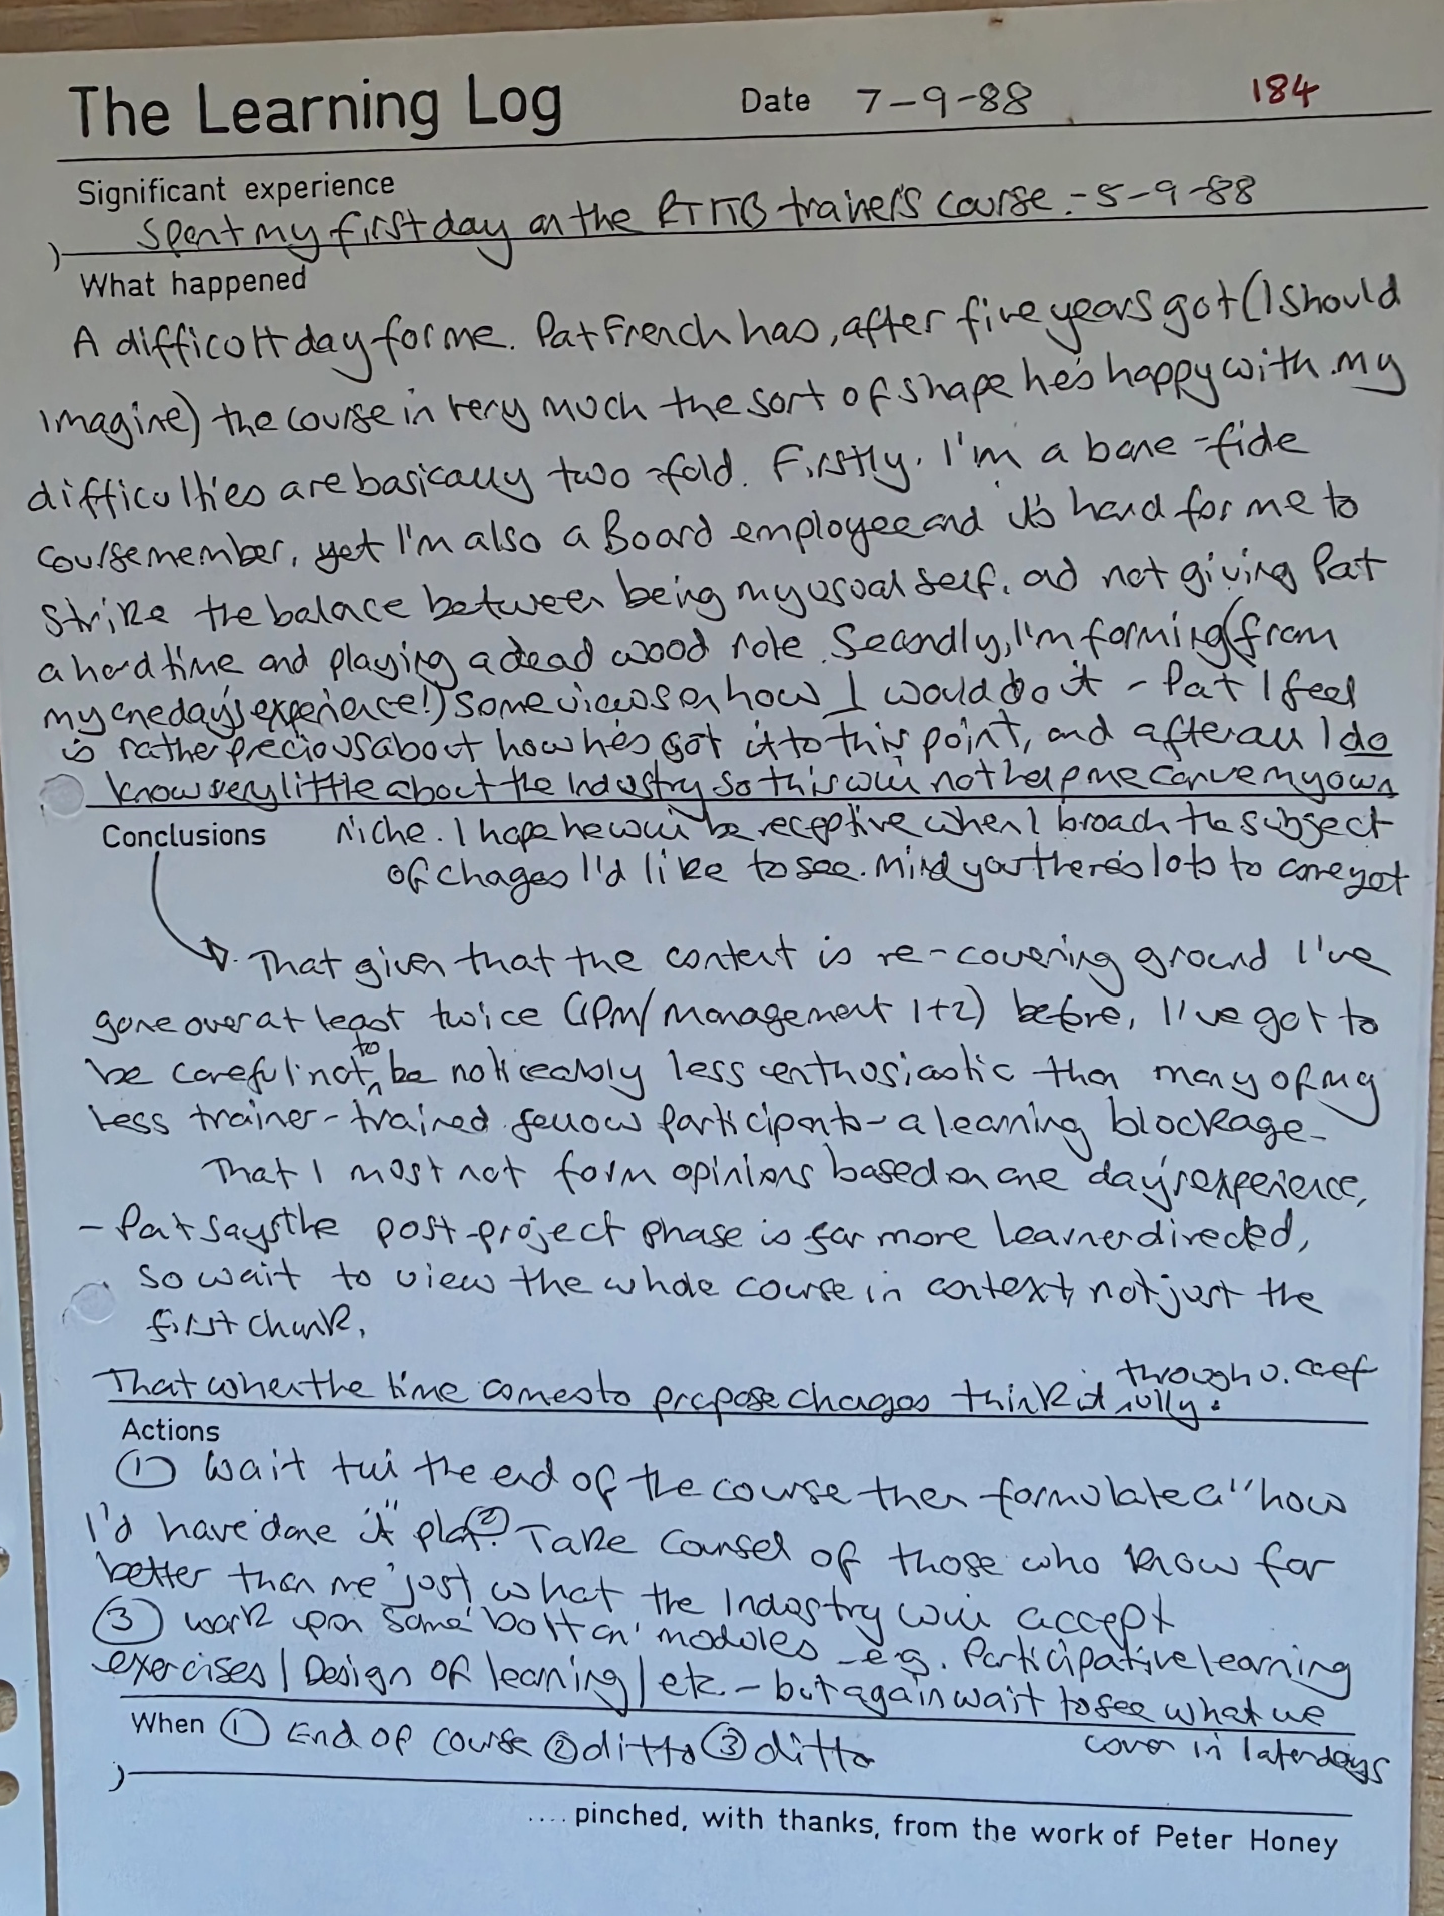 The Learning Log Date 7-9-88 184
Significant experience
Spent my first day on the RTITB trainer's course. - 5-9-88
What happened
A difficult day for me. Pat French has, after five years got (I should
imagine) the course in very much the sort of shape he's happy with. My
difficulties are basically two-fold. Firstly, I'm a bone-fide
course member, yet I'm also a Board employee and it's hard for me to
strike the balace between being my usual self, ad not giving Pat
a hard time and playing a dead wood role. Secondly, I'm forming (from
my one day's experience!) some views on how I would do it - Pat I feel
is rather precious about how he's got it to this point, and after all I do
know very little about the Industry so this will not help me carve my own
Conclusions niche. I hope he will be receptive when I broach the subject
of chages I'd like to see. Mind you there's lots to come yet
That given that the content is re-covering ground I've
gone over at least twice (IPM/Management 1+2) before, I've got to
be careful not to be noticeably less enthusiastic than many of my
less trainer-trained fellow participants - a learning blockage.
That I must not form opinions based on one day's experience,
- Pat says the post-project phase is far more learner directed,
so wait to view the whole course in context, not just the
first chunk.
That when the time comes to propose chages think it through v. caref
ully.
Actions
① Wait till the end of the course then formulate a "how
I'd have done it" plan. ② Take counsel of those who know far
better than me just what the Industry will accept
③ work upon some 'bolt on' modules - e.g. Participative learning
exercises / Design of learning / etc. - but again wait to see what we
cover in later days
When ① End of course ② ditto ③ ditto
.... pinched, with thanks, from the work of Peter Honey